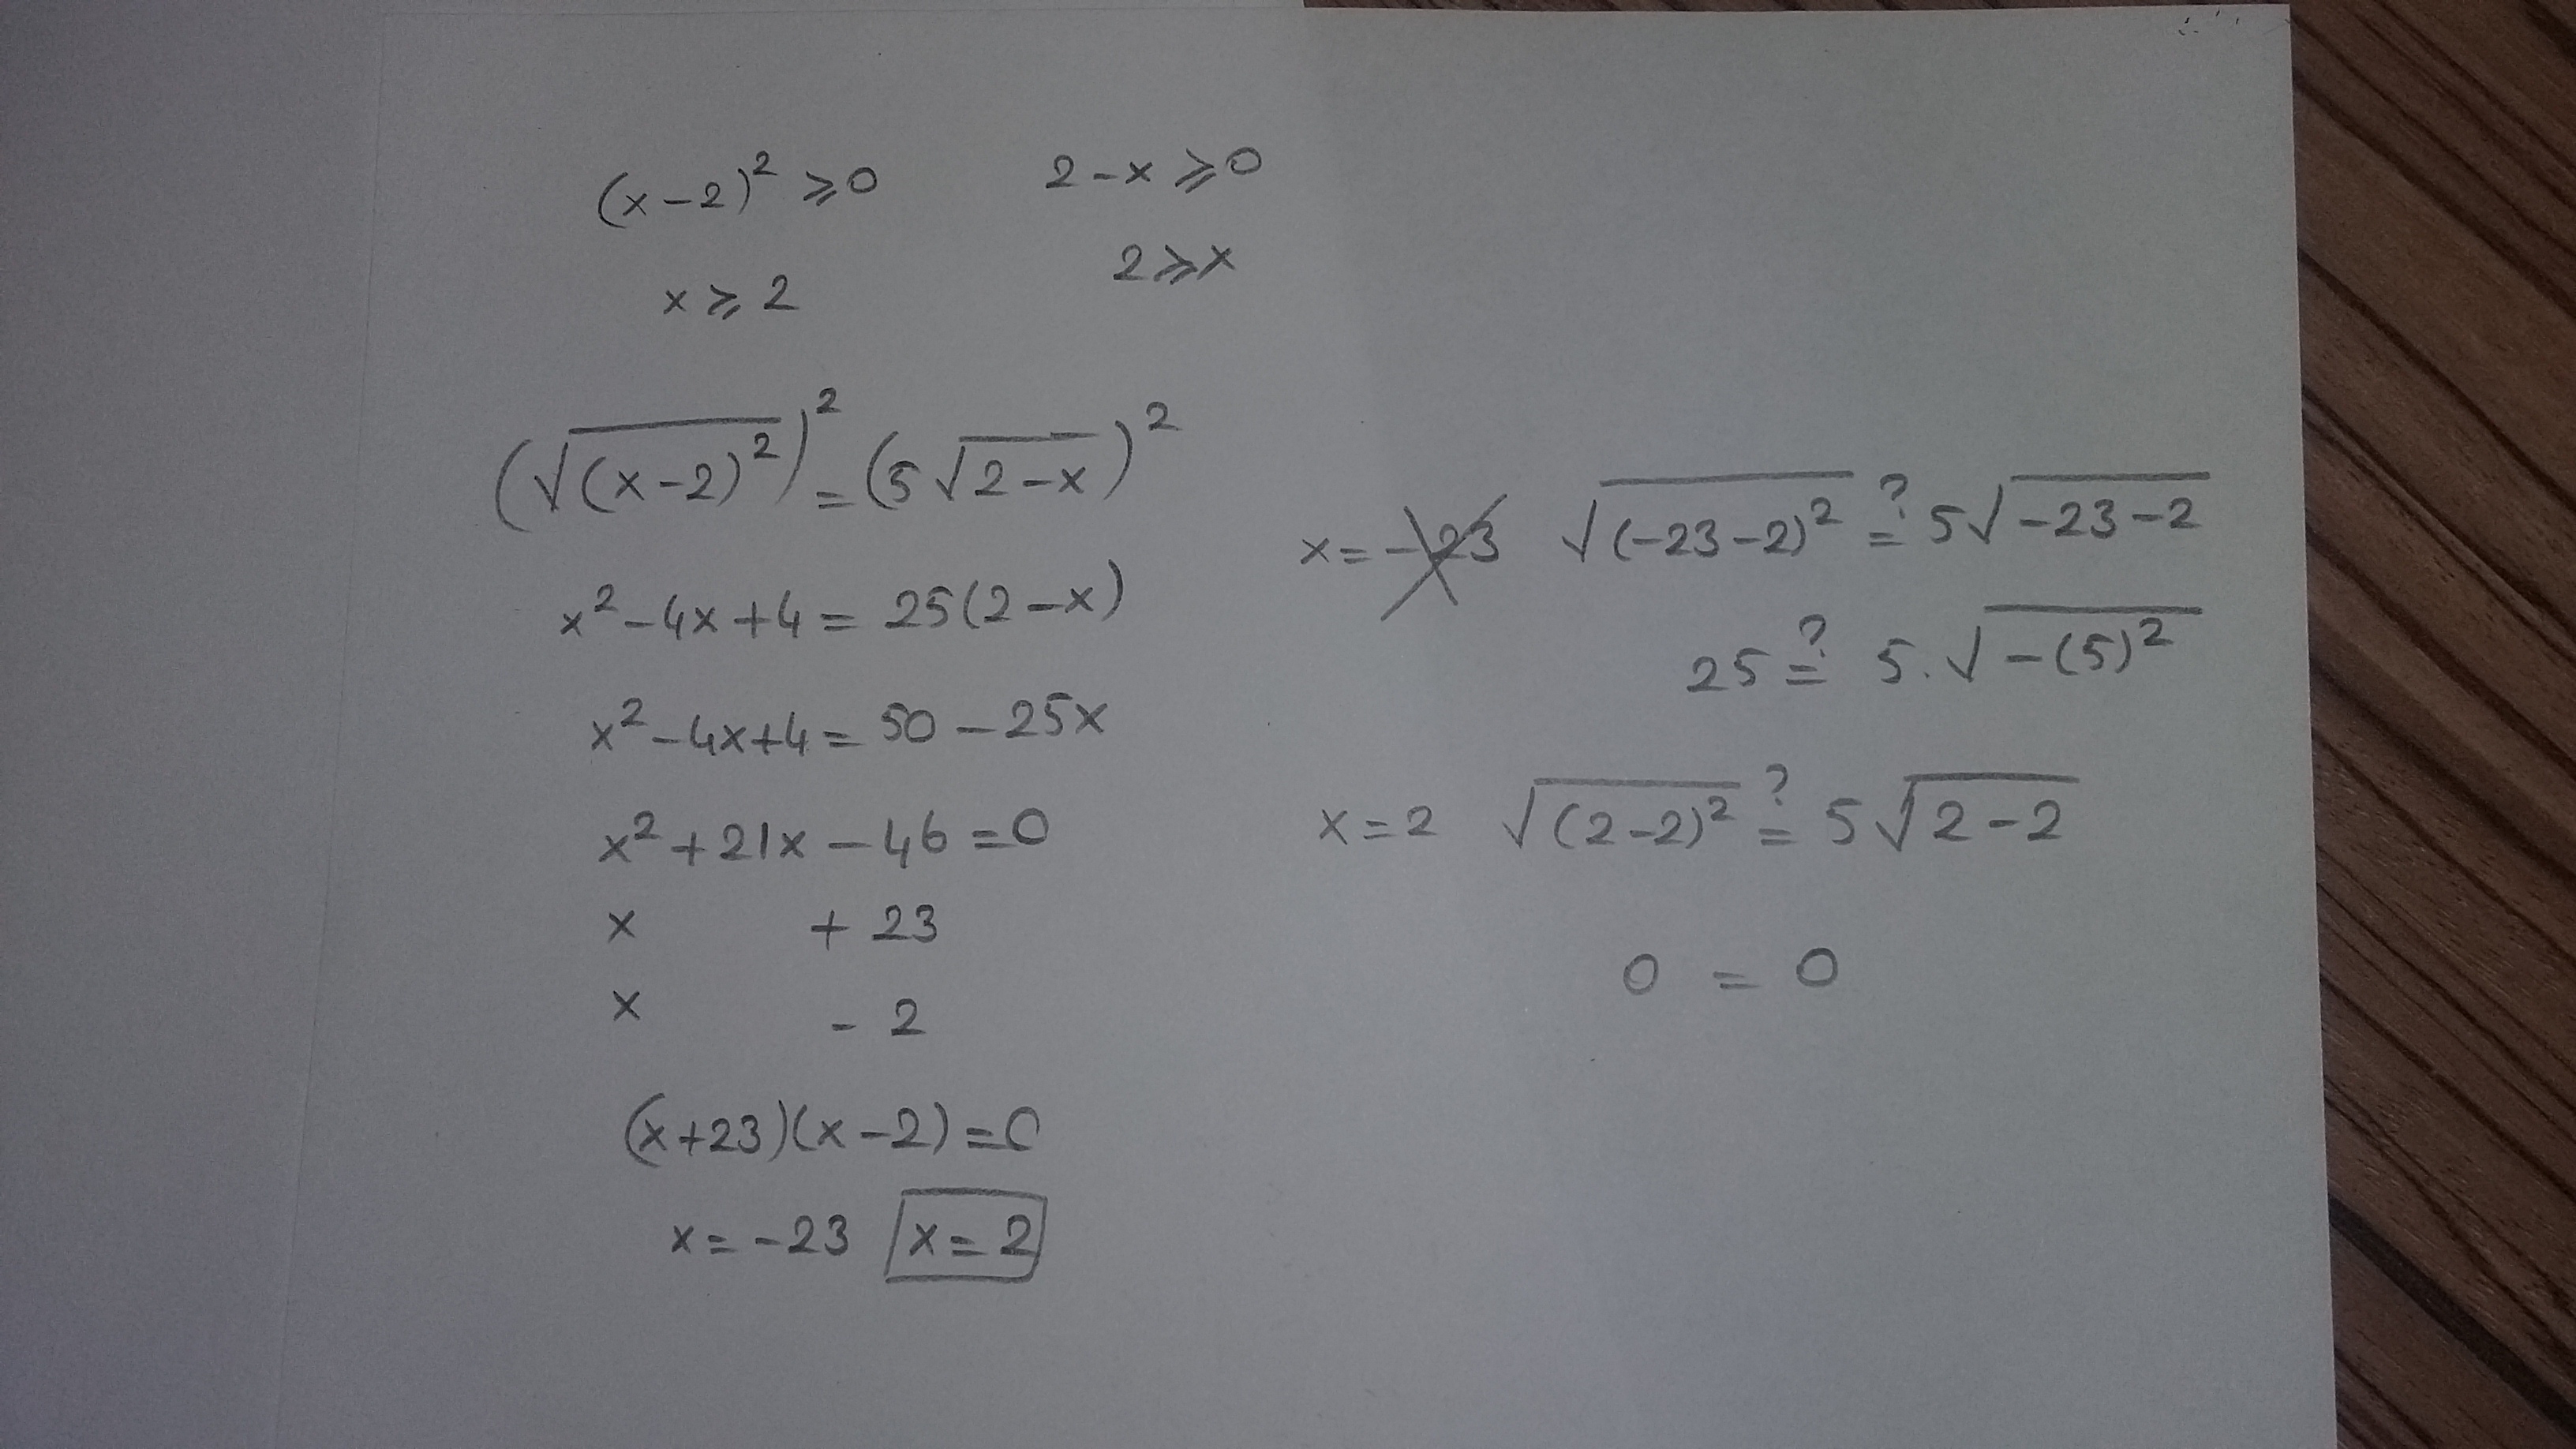 (x-2)² ⩾0
x ⩾ 2
2-x ⩾0
2⩾x
(√(x-2)²)² = (5√2-x)²
x²-4x+4 = 25(2-x)
x²-4x+4 = 50-25x
x²+21x-46 =0
x +23
x -2
(x+23)(x-2)=0
x=-23 x=2
x=-23 √(-23-2)² ?= 5√-23-2
25 ?= 5.√-(5)²
x=2 √(2-2)² ?= 5√2-2
0 = 0